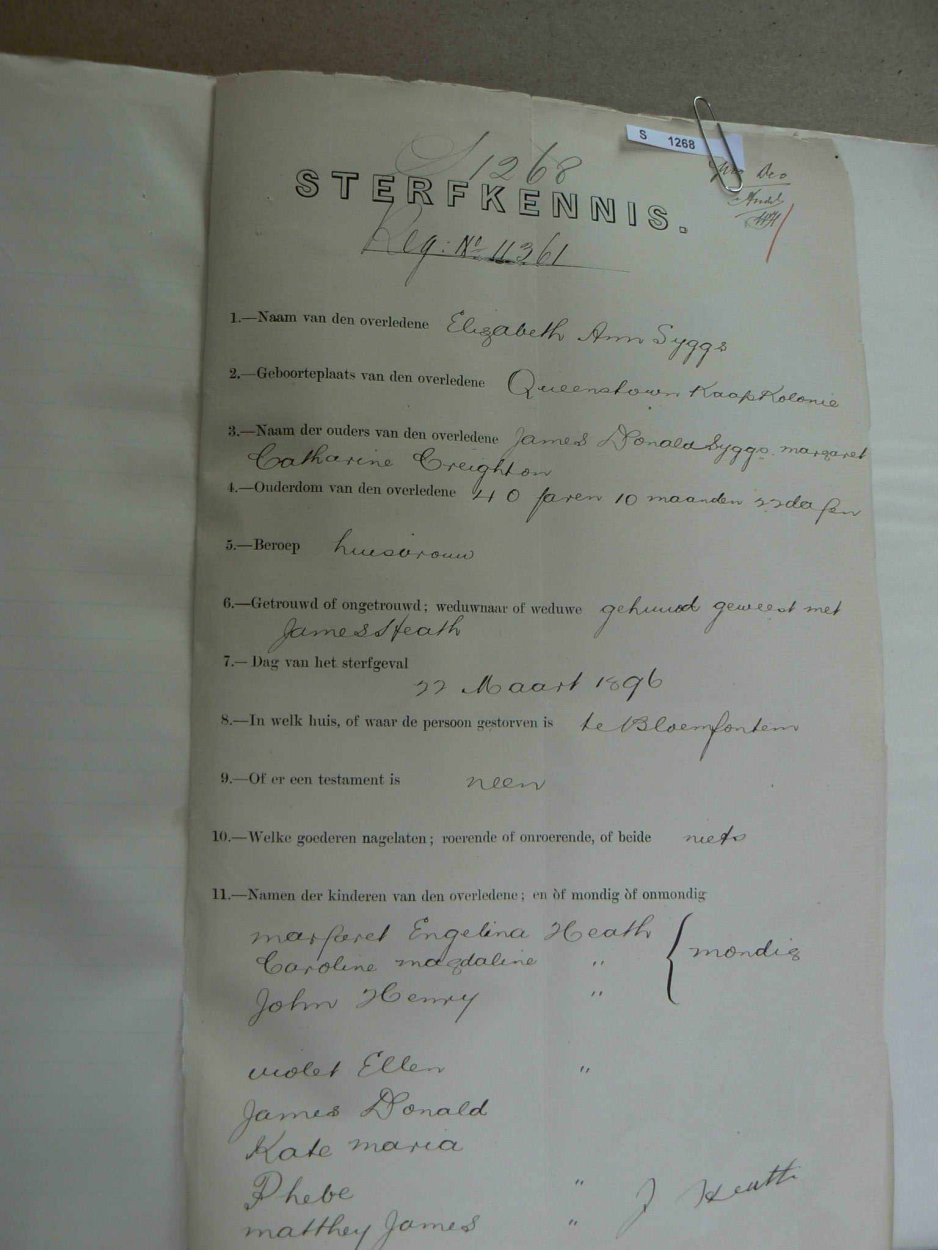 S 1268
S 1268
STERFKENNIS.
Reg: No 11361
1.—Naam van den overledene Elizabeth Ann Syggs
2.—Geboorteplaats van den overledene Queenstown Kaap Kolonie
3.—Naam der ouders van den overledene James Donald Syggs. margaret
Catharine Creighton
4.—Ouderdom van den overledene 40 jaren 10 maanden 22 dagen
5.—Beroep huisvrouw
6.—Getrouwd of ongetrouwd; weduwnaar of weduwe gehuwd geweest met
James Heath
7.—Dag van het sterfgeval
22 Maart 1896
8.—In welk huis, of waar de persoon gestorven is te Bloemfontein
9.—Of er een testament is neen
10.—Welke goederen nagelaten; roerende of onroerende, of beide niets
11.—Namen der kinderen van den overledene; en òf mondig òf onmondig
margaret Engelina Heath
Caroline magdaline " mondig
John Henry "
violet Ellen "
James Donald
Kate maria
Phebe "
J Heath
matthey James "